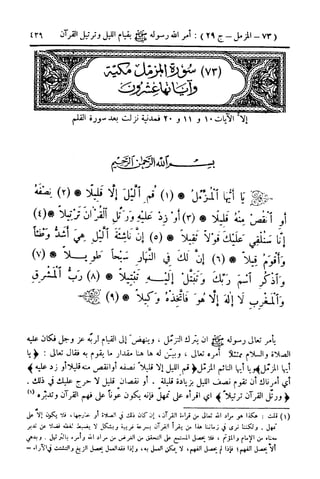 (٧٣ – المزمل – ج ٢٩) : أمر الله رسوله ﷺ بقيام الليل وترتيل القرآن ٤٢٩
(٧٣) سورة المزمل مكية
وآياتها عشرون
إلا الآيات ١٠ و ١١ و ٢٠ فمدنية نزلت بعد سورة القلم
بسم الله الرحمن الرحيم
يا أيها المزمل (١) قم الليل إلا قليلا (٢) نصفه
أو انقص منه قليلا (٣) أو زد عليه ورتل القرآن ترتيلا (٤)
إنا سنلقي عليك قولا ثقيلا (٥) إن ناشئة الليل هي أشد وطئا
وأقوم قيلا (٦) إن لك في النهار سبحا طويلا (٧)
واذكر اسم ربك وتبتل إليه تبتيلا (٨) رب المشرق
والمغرب لا إله إلا هو فاتخذه وكيلا (٩)
يأمر تعالى رسوله ﷺ ان يترك التزمل ، وينهض إلى القيام لربه عز وجل فكان عليه
الصلاة والسلام ممتثلا أمره تعالى ، وبين له ها هنا مقدار ما يقوم به فقال تعالى : ﴿ يا
أيها المزمل ﴾ يا أيها النائم المزمل ﴿ قم الليل إلا قليلا نصفه أو انقص منه قليلا أو زد عليه ﴾
أي أمرناك أن تقوم نصف الليل بزيادة قليلة ، أو نقصان قليل لا حرج عليك في ذلك .
﴿ ورتل القرآن ترتيلا ﴾ اي اقرأه على تمهل فإنه يكون عونا على فهم القرآن وتدبره (١)
(١) قلت : هكذا هو مراد الله تعالى من قراءة القرآن ، إن كان ذلك في الصلاة أو خارجها ، فلا يكون إلا على
تمهل . ولكننا نرى في زماننا هذا من يقرأ القرآن بسرعة غريبة وبشكل لا يضبط لفظه فضلا عن تدبر
معناه من الإمام والمؤتم ، فلا يحصل المستمع على التحقق من الغرض من مراد الله وأمره بالترتيل . وبدهي
ألا يحصل الفهم ! فإذا لم يحصل الفهم ، لا يمكن العمل ، وإذا فقد العمل يحصل الزيغ والتشتت في الآراء (=)